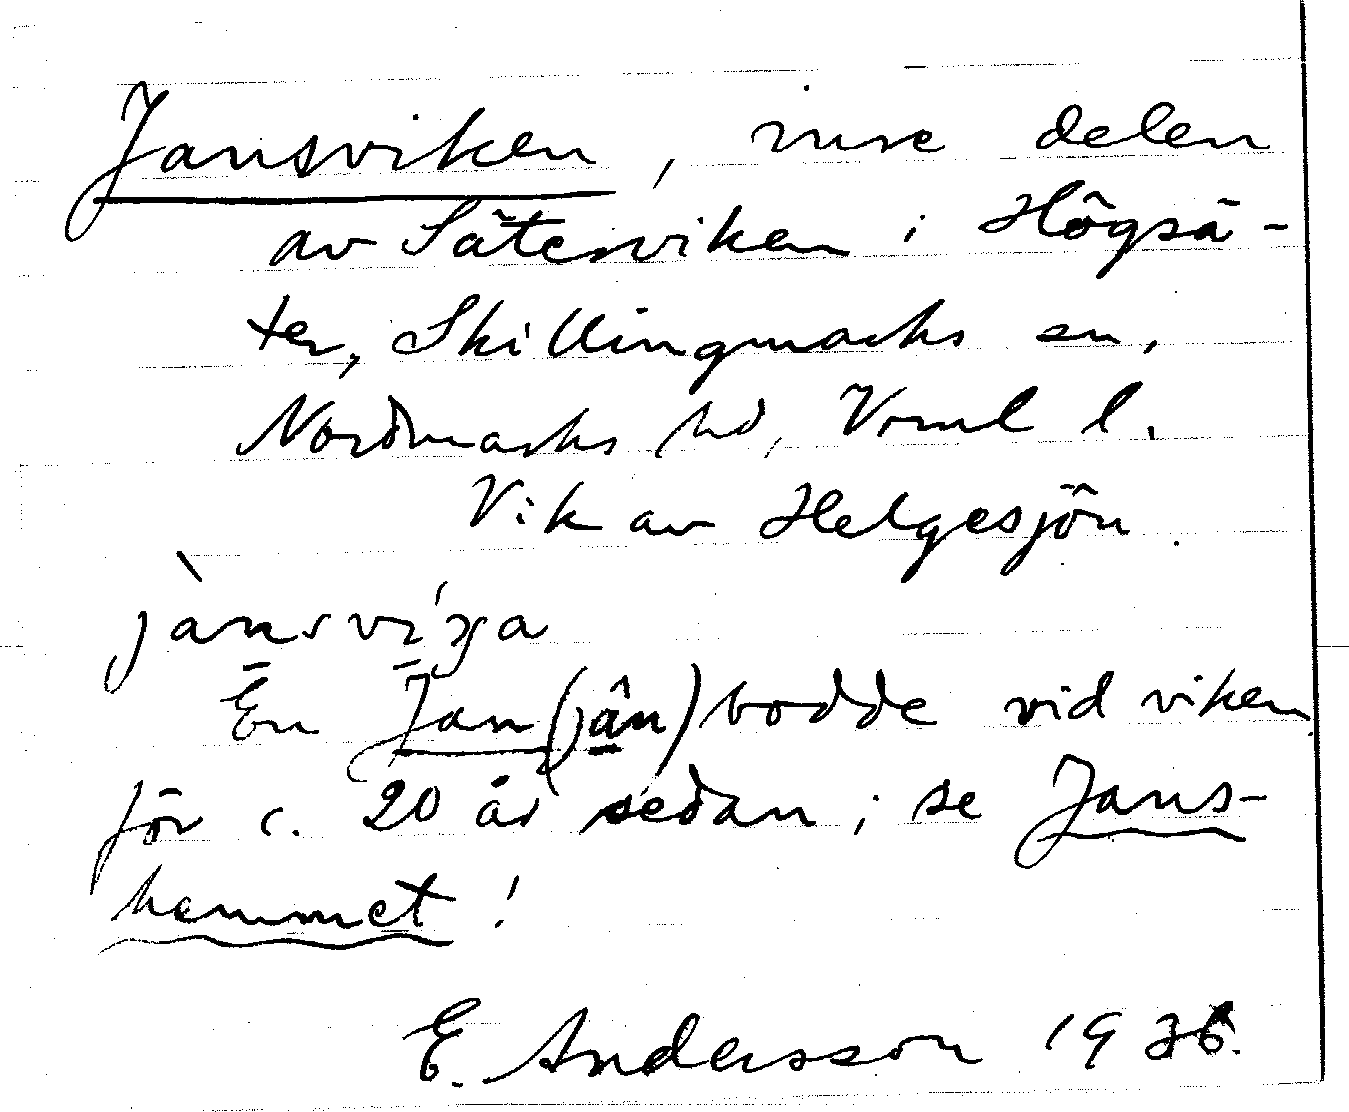 Jansviken, inre delen
av Sätersviken i Högsä-
ter, Skillingmarks sn,
Nordmarks hd, Vrml l.
Vik av Helgesjön.
jànsvíʒa
En Jan (jân) bodde vid viken
för c. 20 år sedan; se Jans-
hemmet!
E. Andersson 1936.